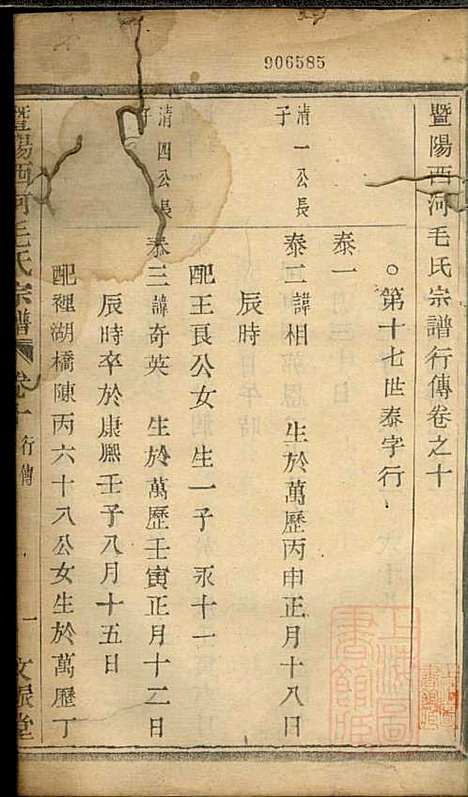 906585
暨陽西河毛氏宗譜行傳卷之十
○第十七世泰字行
泰一
清一公長子
泰二諱相 生於萬歷丙申正月十八日
辰時
配王艮公女 生一子 永十一
清四公長子
泰三諱奇英 生於萬歷壬寅正月十二日
辰時卒於康熙壬子八月十五日
配裡湖橋陳丙六十八公女生於萬歷丁
暨陽西河毛氏宗譜 卷十 行傳 一
上海圖書館所